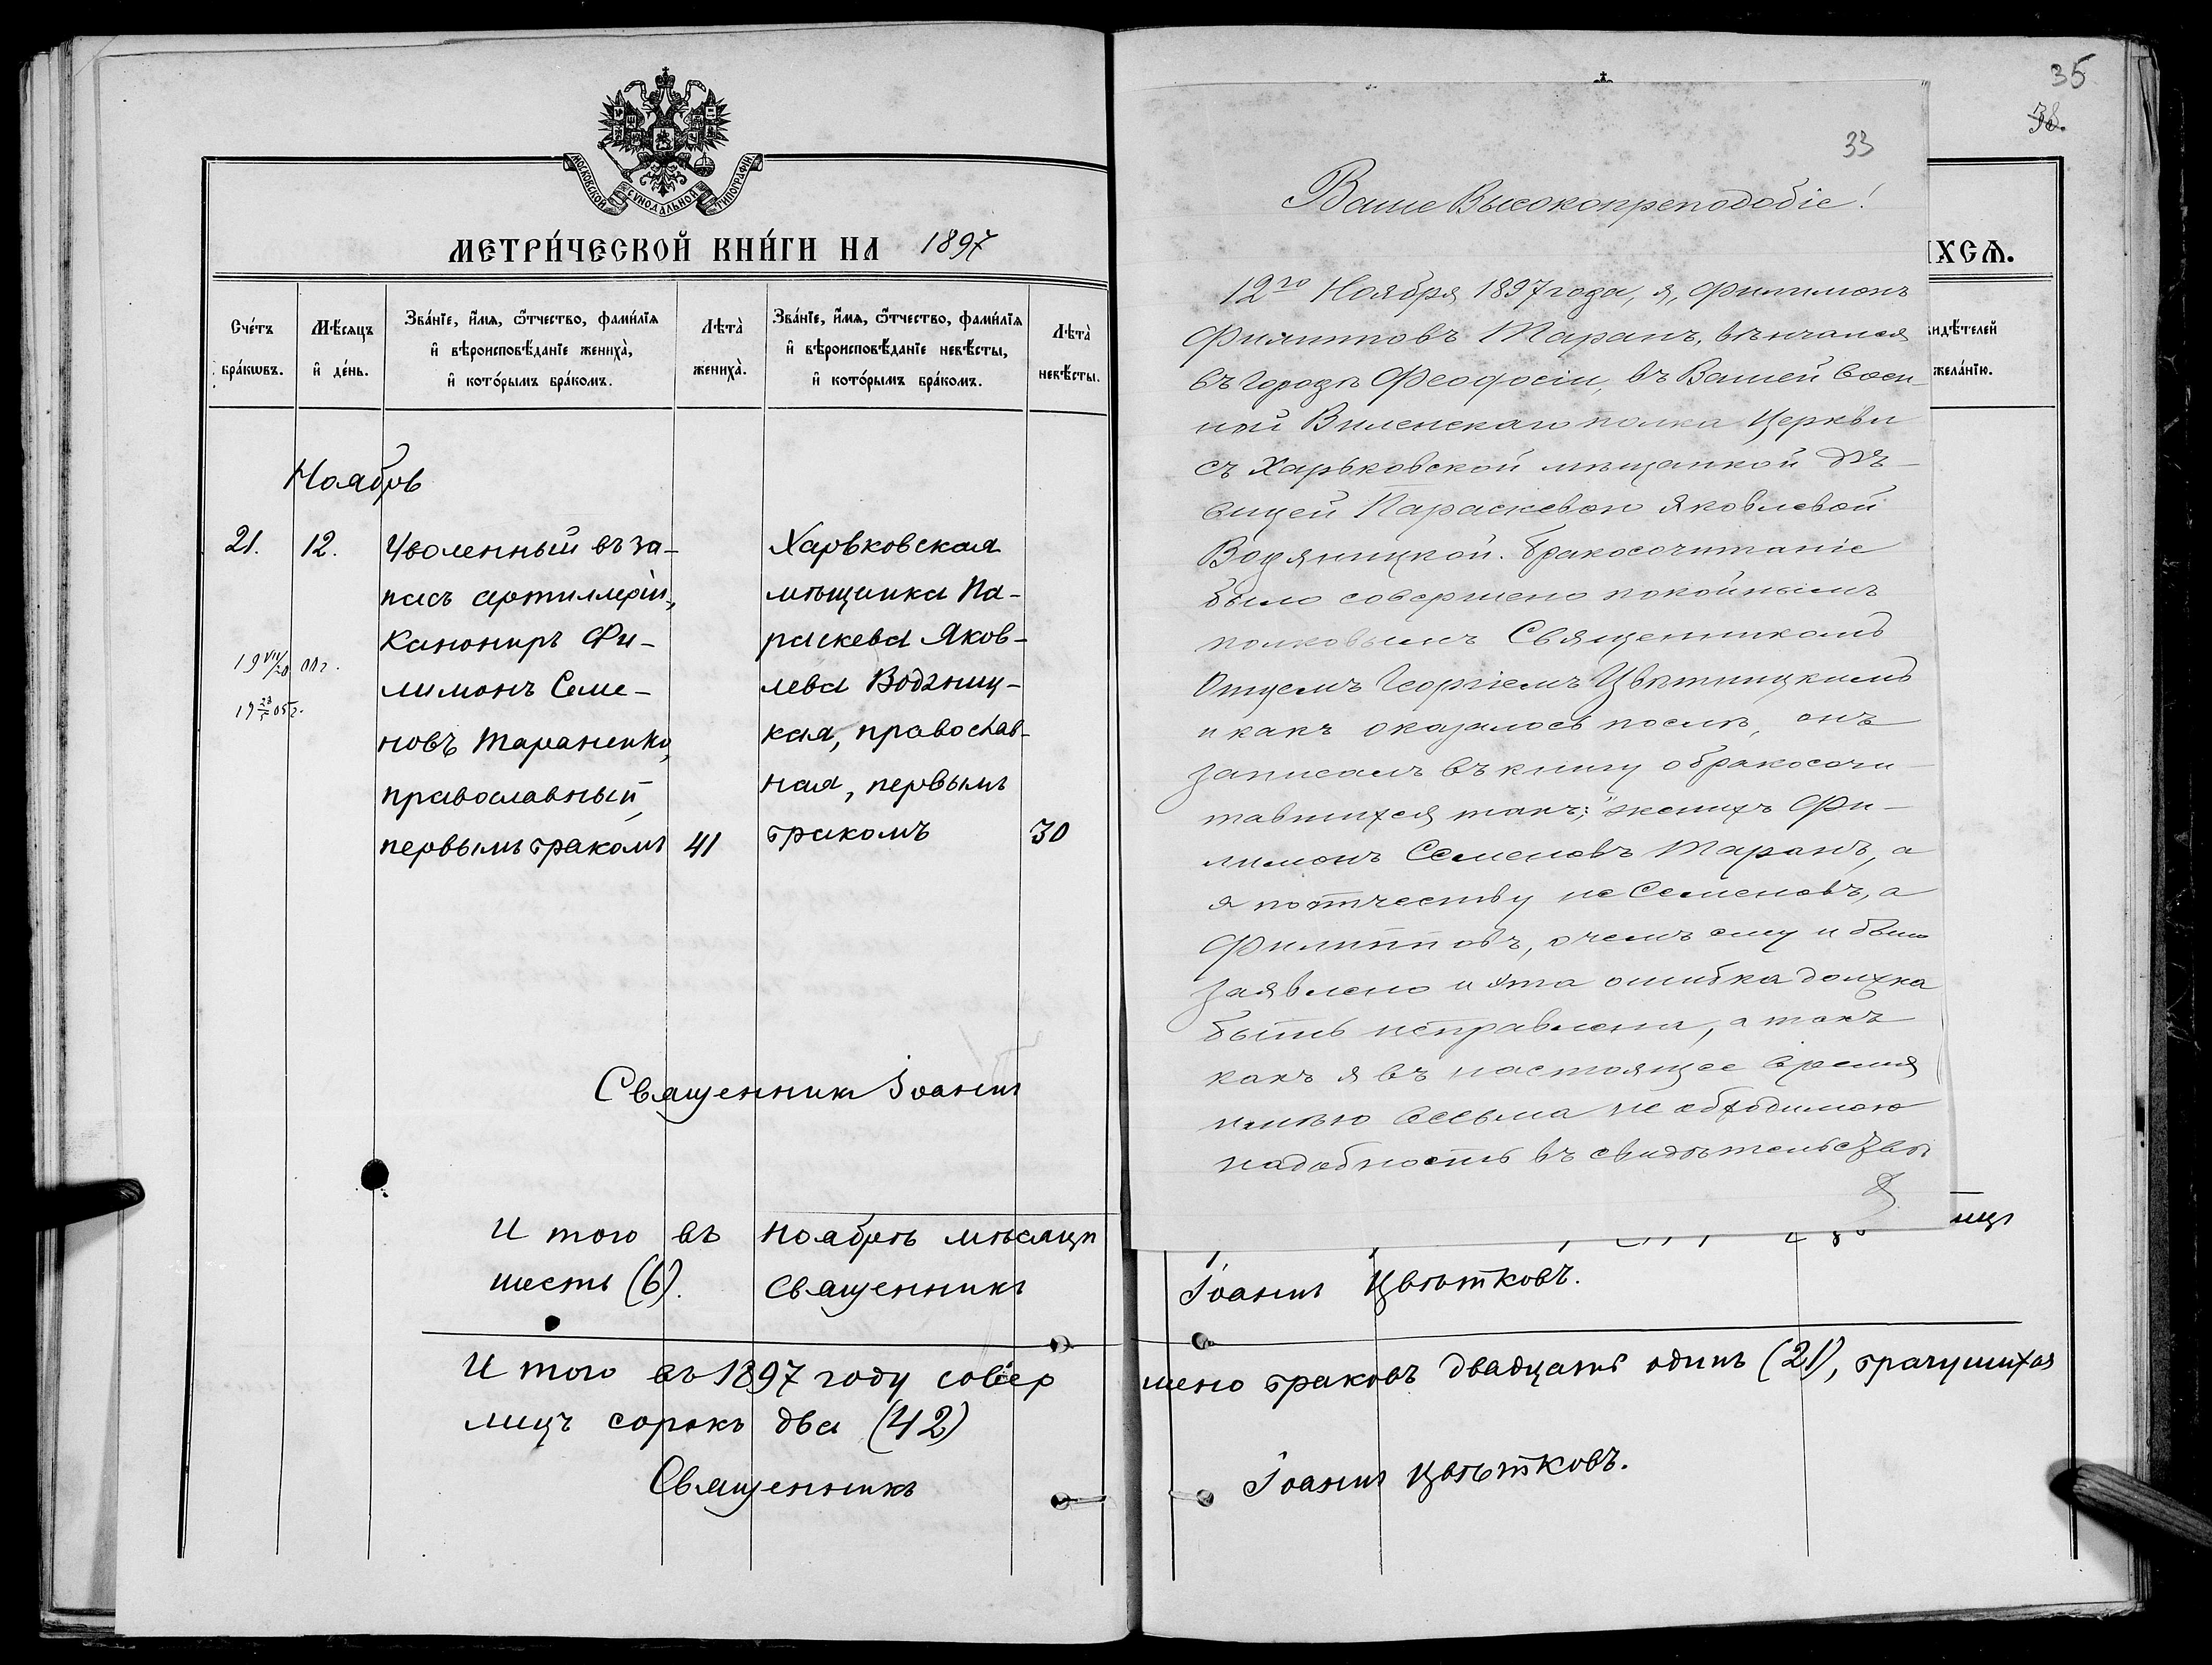 МОСКОВСКОЙ СѴНОДАЛЬНОЙ ТИПОГРАФІИ
МЕТРИ́ЧЕСКОЙ КНИ́ГИ НА 1897
Сче́тъ бра́кѡвъ.
Мѣ́сяцъ и҆ де́нь.
Зва́нїе, и҆́мѧ, ѻ҆́тчество, фами́лїѧ
и҆ вѣроисповѣ́данїе женихà,
и҆ кото́рымъ бра́комъ.
Лѣтà женихà.
Зва́нїе, и҆́мѧ, ѻ҆́тчество, фами́лїѧ
и҆ вѣроисповѣ́данїе невѣ́сты,
и҆ кото́рымъ бра́комъ.
Лѣтà невѣ́сты.
Ноябрь
21. 12.
Уволенный въ за-
пасъ артиллеріи,
Канониръ Фи-
лимонъ Семе-
новъ Тараненко,
православный,
первымъ бракомъ 41
Харьковская
мѣщанка Па-
раскева Яков-
лева Водяниц-
кая, православ-
ная, первымъ
бракомъ 30
19 VII/20 00г.
19 23/5 05г.
Священникъ Іоаннъ
И того въ ноябрѣ мѣсяцѣ
шесть (6). Священникъ
И того въ 1897 году совер
лицъ сорокъ два (42)
Священникъ
35
38.
33
Ваше Высокопреподобіе!
12го Ноября 1897 года, я, Филимонъ
Филипповъ Таранъ, вѣнчался
въ городѣ Феодосіи, въ Вашей воен-
ной Виленскаго полка Церкви
съ Харьковской мѣщанкой дѣ-
вицей Параскевою Яковлевой
Водяницкой. Бракосочитаніе
было совершено покойнымъ
полковымъ Священникомъ
Отцемъ Георгіемъ Цвѣтницкимъ
и какъ оказалось послѣ, онъ
записалъ въ книгу о бракосочи-
тавшихся такъ: "женихъ Фи-
лимонъ Семеновъ Таранъ, а
я по отчеству не Семеновъ, а
Филипповъ, о чемъ ему и было
заявлено и эта ошибка должна
быть исправлена, а такъ
какъ я въ настоящее время
имѣю весьма необходимою
надобность въ свидѣтельствѣ
ХСѦ.
идѣ́телей
жела́нїю.
лицъ
Іоаннъ Цвѣтковъ.
шено браковъ двадцать одинъ (21), брачушихся
Іоаннъ Цвѣтковъ.